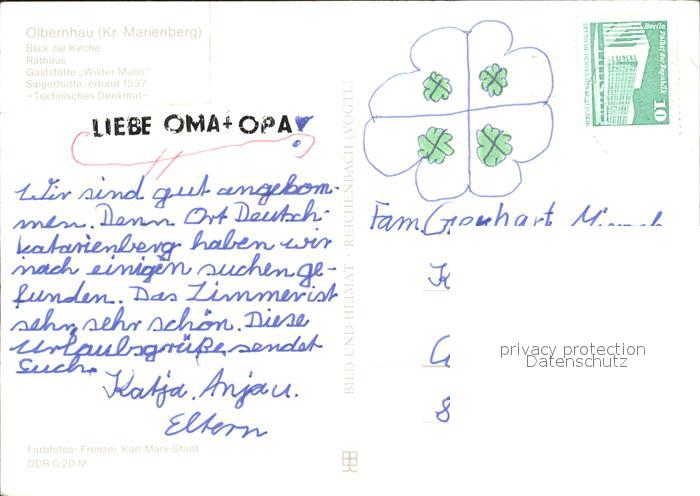 Olbernhau (Kr. Marienberg)
Blick zur Kirche
Rathaus
Gaststätte „Wilder Mann"
Saigerhütte, erbaut 1537
—Technisches Denkmal—
LIEBE OMA+OPA
!
Wir sind gut angekom-
men. Denn Ort Deutsch-
katarienberg haben wir
nach einigen suchen ge-
funden. Das Zimmer ist
sehr, sehr schön. Diese
Urlaubsgrüße sendet
Euch
Katja, Anja u.
Eltern
Farbfotos: Frenzel, Karl-Marx-Stadt
DDR 0,20 M
BILD UND HEIMAT · REICHENBACH (VOGTL)
Berlin
Palast der Republik
10
Fam.
privacy protection
Datenschutz